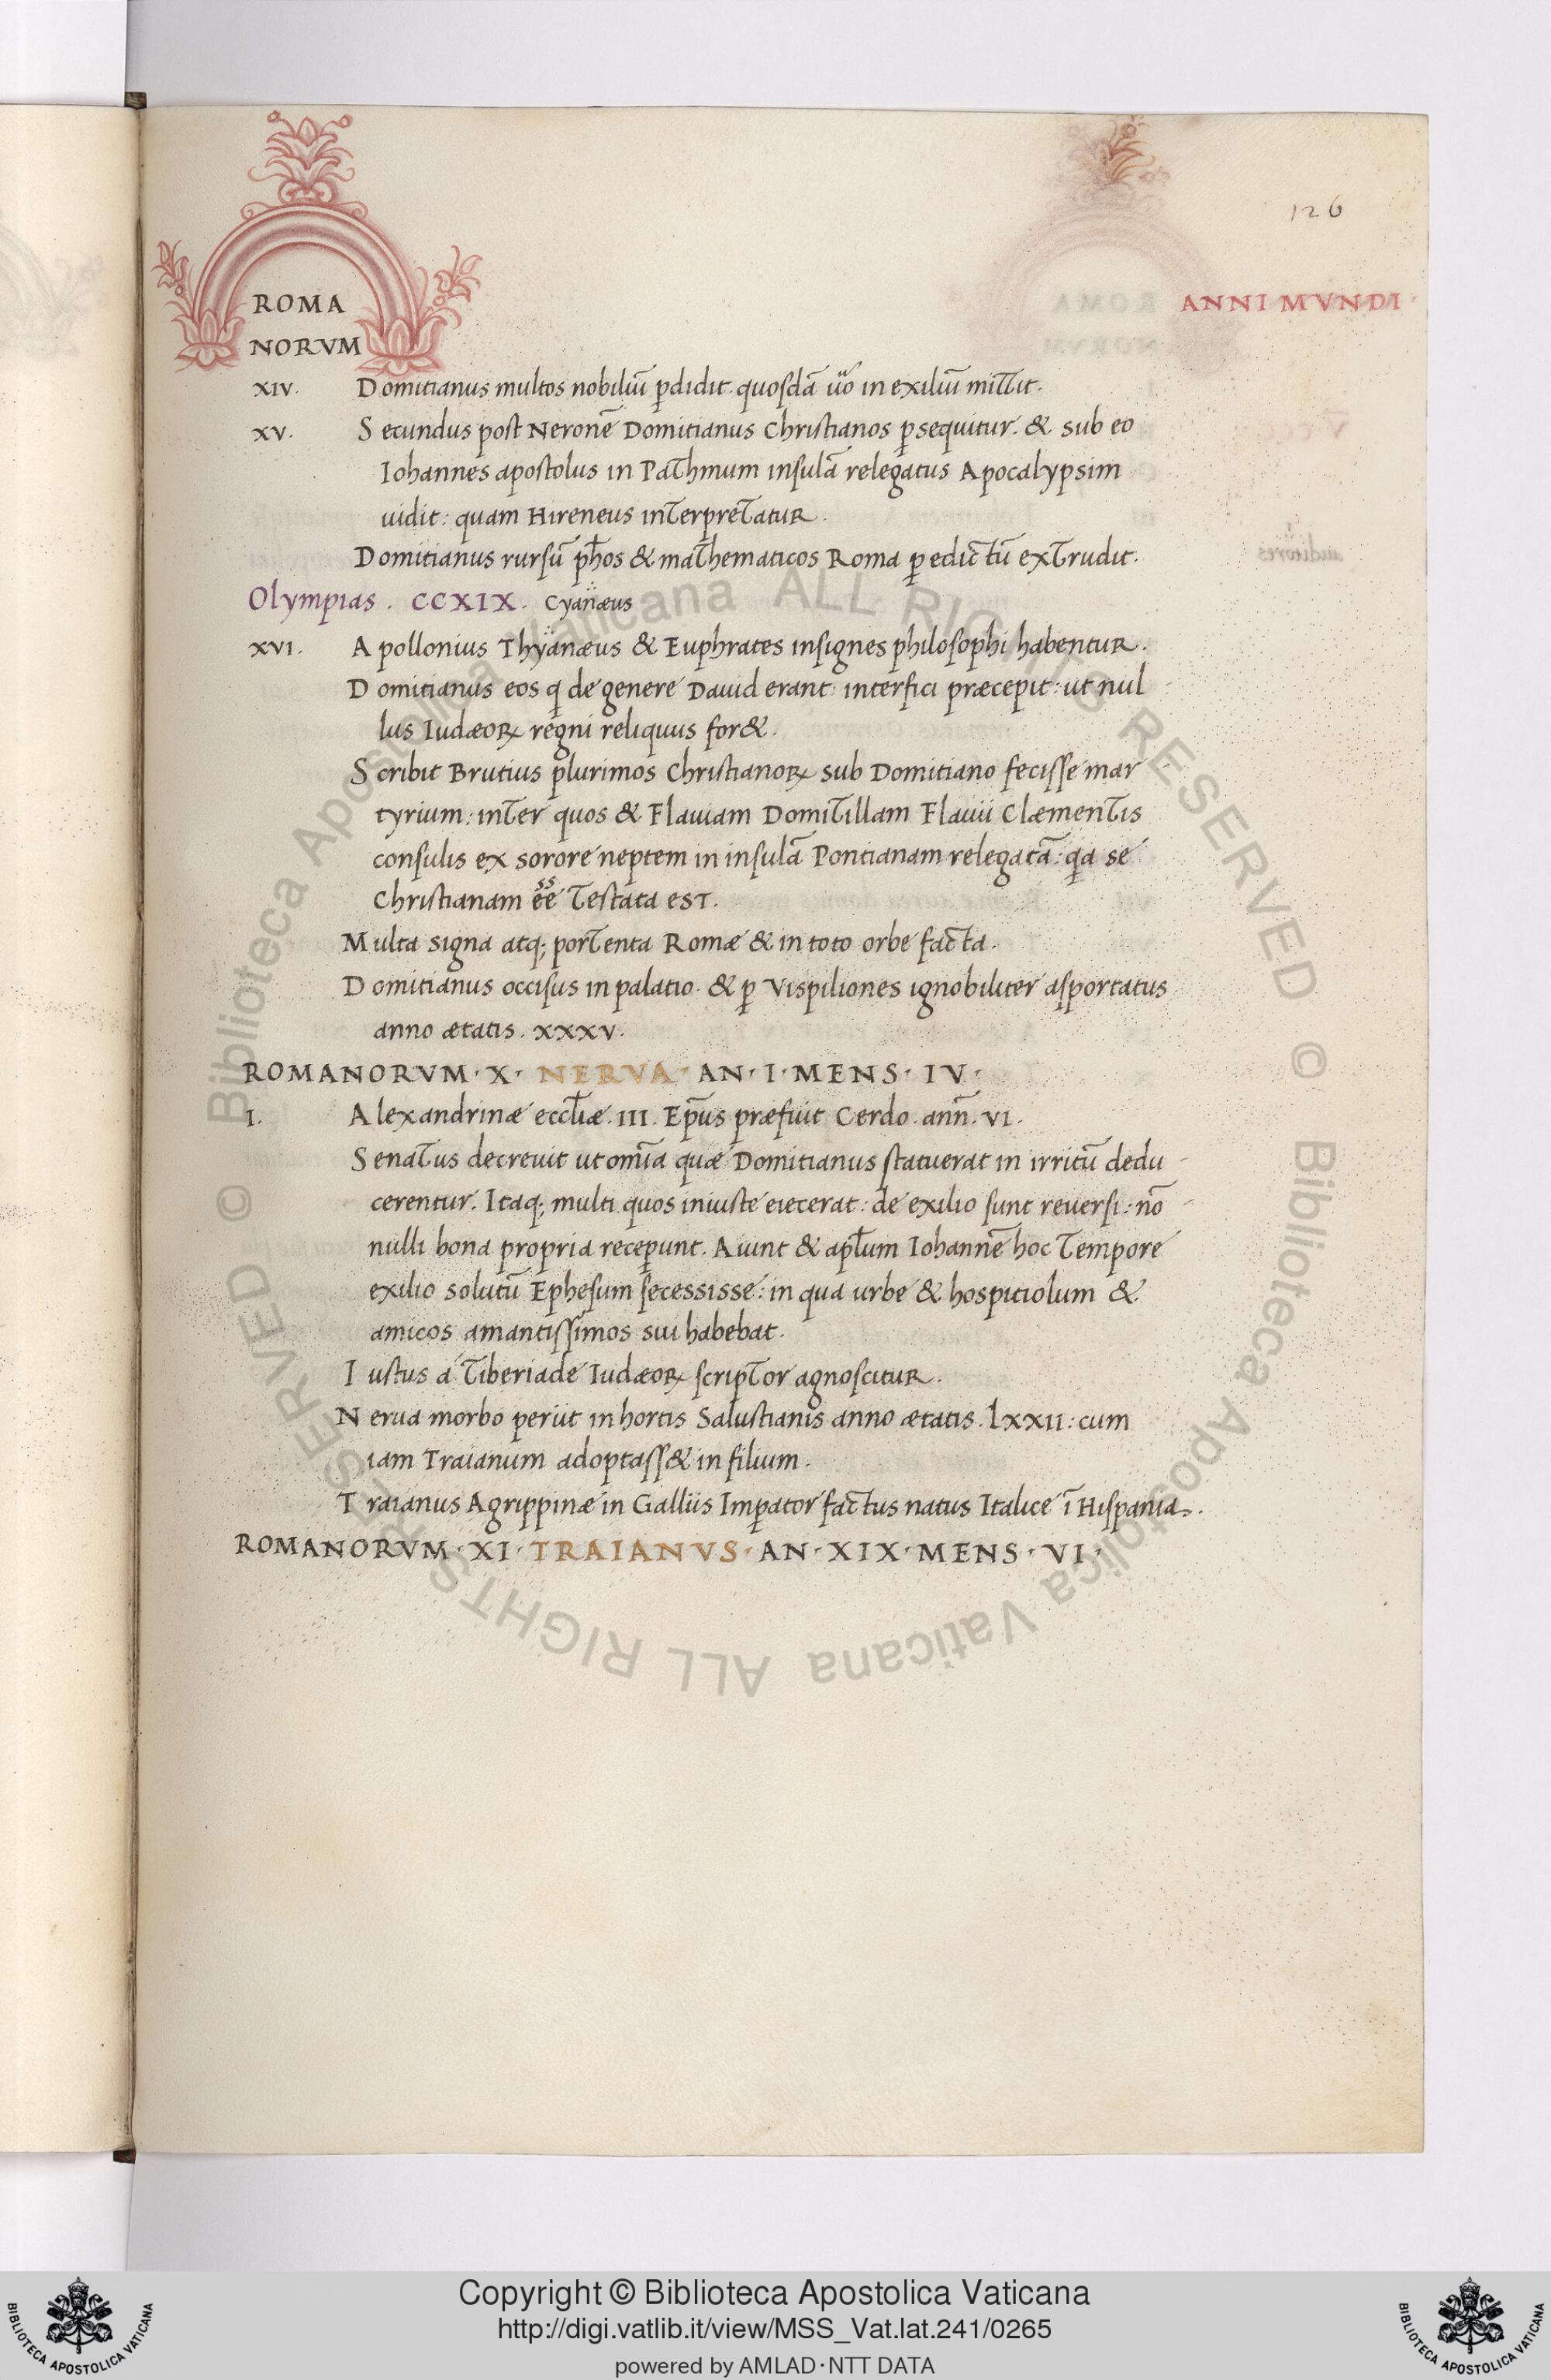 126
ROMA
NORVM
ANNI MVNDI
XIV. Domitianus multos nobiliū ꝑdidit. quosdā ůo in exiliū mittit.
XV. Secundus post Neronē Domitianus Christianos ꝑsequitur. & sub eo
Iohannes apostolus in Pathmum insulā relegatus Apocalypsim
uidit: quam Hireneus interpretatur.
Domitianus rursū ph̄os & mathematicos Roma ꝑ edictū extrudit.
Olympias. CCXIX. Cyanæus
XVI. Apollonius Thyanæus & Euphrates insignes philosophi habentur.
Domitianus eos q de genere Dauid erant: interfici præcepit: ut nul
lus Iudæoꝝ regni reliquus for&.
Scribit Brutius plurimos Christianoꝝ sub Domitiano fecisse mar
tyrium: inter quos & Flauiam Domitillam Flauii Clæmentis
consulis ex sorore neptem in insulā Pontianam relegatā: qa se
Christianam ēē testata est.
Multa signa atq; portenta Romæ & in toto orbe facta.
Domitianus occisus in palatio. & ꝑ Vispiliones ignobiliter asportatus
anno ætatis. XXXV.
ROMANORVM · X · NERVA · AN · I · MENS · IV ·
I. Alexandrinæ eccl̄iæ. III. Ep̄us præfuit Cerdo. ann̄. VI.
Senatus decreuit ut omīa quæ Domitianus statuerat in irritū dedu
cerentur. Itaq; multi quos iniuste eiecerat: de exilio sunt reuersi: nō
nulli bona propria receꝑunt. Aiunt & apl̄um Iohannē hoc tempore
exilio solutū Ephesum secessisse: in qua urbe & hospitiolum &
amicos amantissimos sui habebat.
Iustus a Tiberiade Iudæoꝝ scriptor agnoscitur.
Nerua morbo periit in hortis Salustianis anno ætatis. lxxii: cum
iam Traianum adoptass& in filium.
Traianus Agrippinæ in Galliis Imꝑator factus natus Italice ī Hispania.
ROMANORVM · XI · TRAIANVS · AN · XIX · MENS · VI ·
© Biblioteca Apostolica Vaticana ALL RIGHTS RESERVED © Biblioteca Apostolica Vaticana ALL RIGHTS RESERVED
Copyright © Biblioteca Apostolica Vaticana
http://digi.vatlib.it/view/MSS_Vat.lat.241/0265
powered by AMLAD·NTT DATA
BIBLIOTECA APOSTOLICA VATICANA
BIBLIOTECA APOSTOLICA VATICANA